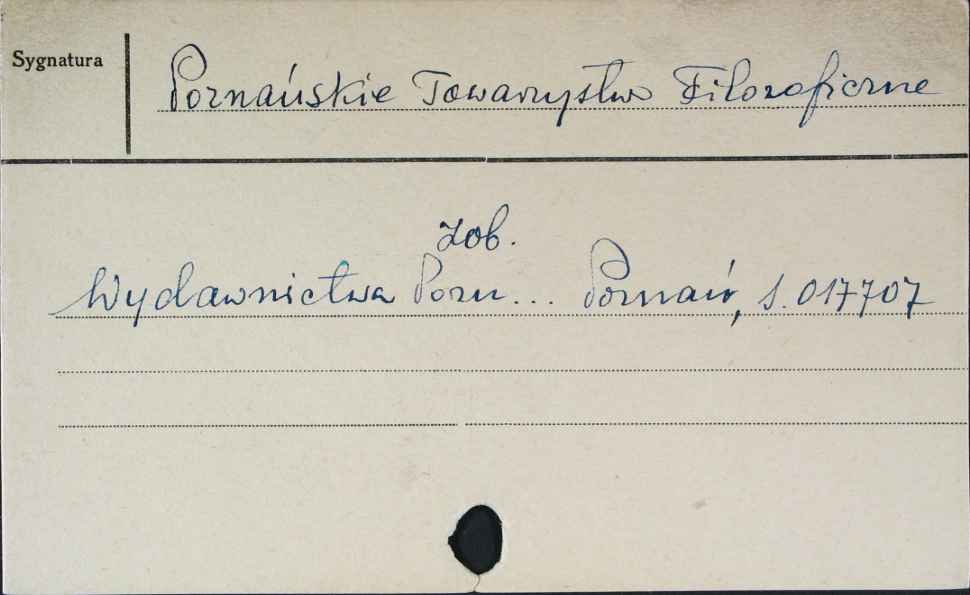 Sygnatura
Poznańskie Towarzystwo Filozoficzne
zob.
Wydawnictwa Pozn... Poznań, S. 017707